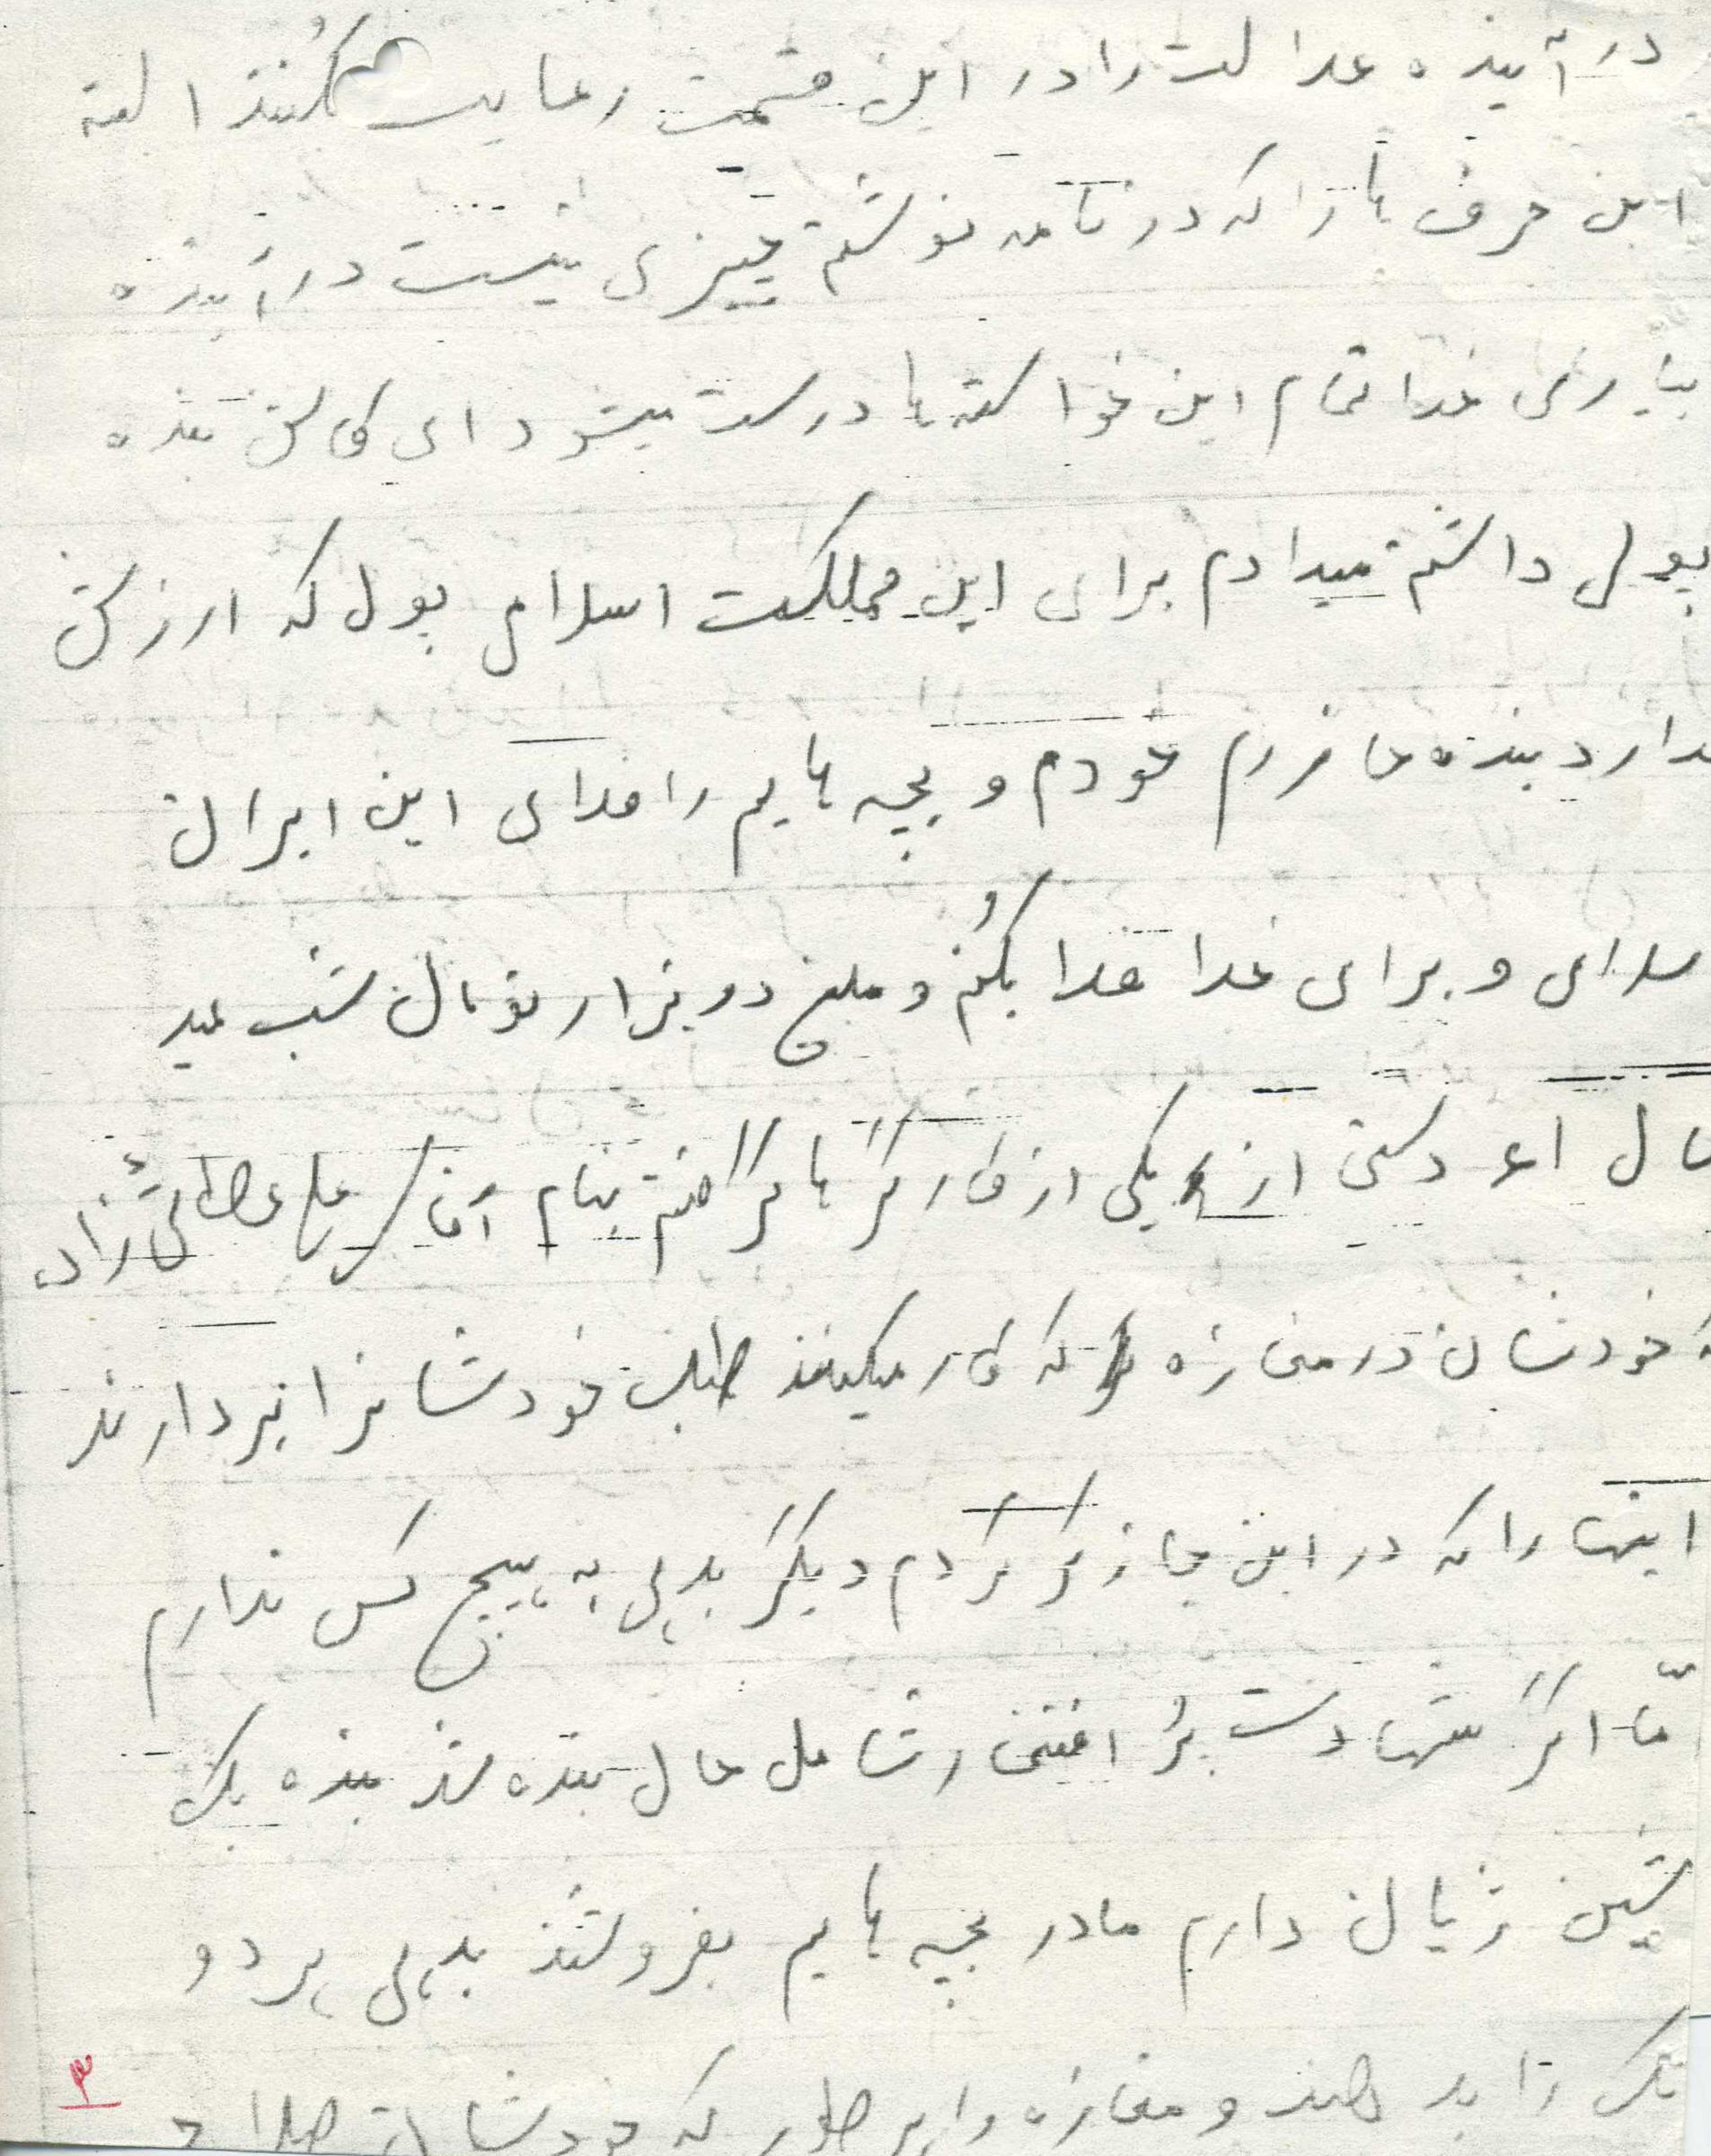 در آینده عدالت را در این قسمت رعایت کُنند البته
این حرف ها را که در نامه نوشتم چیزی نیست در آینده
بیاری خدا تمام این خواسته ها درست میشود ای کاش بنده
پولی داشتم میدادم برای این مملکت اسلامی پول که ارزش
ندارد بنده حاضرم خودم و بچه هایم را فدای این ایران
اسلامی و برای خدا فدا بکُنم و مبلغ دو هزار تومان شب عید
سال دستی از یکی از کارگرها گرفتم بنام آقای
که خودشان در مغازه که کار میکنند طلب خودشانرا بردارند
اینها را که در این جا ذکر کردم دیگر بدهی به هیچ کس ندارم
امّا اگر شهادت پُر افتخار شامل حال بنده شد بنده یک
ماشین ژیان دارم مادر بچه هایم بفروشند بدهی هر دو
بانک را بدهند و مغازه را هر طور که خودشان صلاح
۳